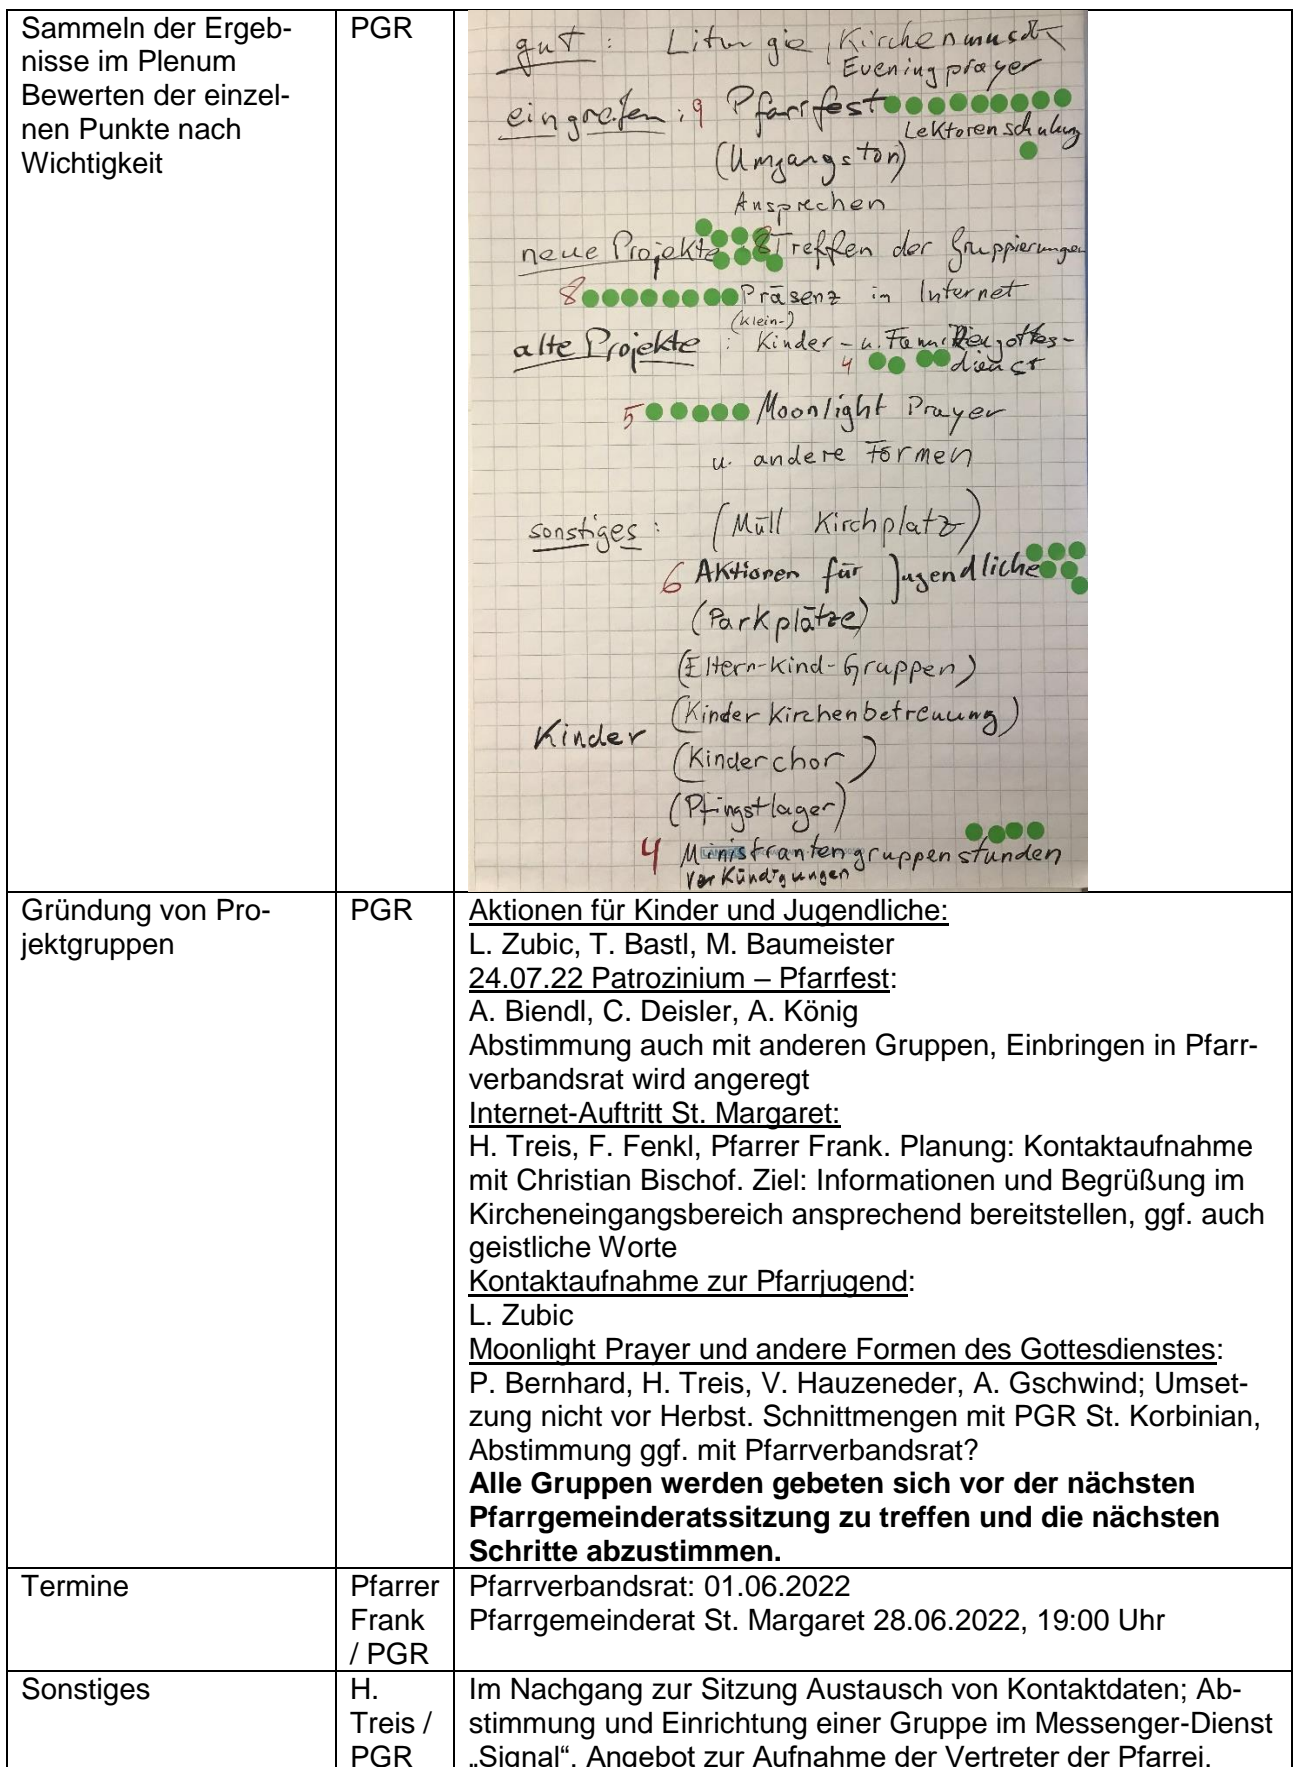 Sammeln der Ergeb-
nisse im Plenum
Bewerten der einzel-
nen Punkte nach
Wichtigkeit
PGR
gut : Liturgie, Kirchenmusik
Evening prayer
eingreifen : 9 Pfarrfest
Lektorenschulung
(Umgangston)
Ansprechen
neue Projekte 8 Treffen der Gruppierungen
8 Präsenz in Internet
(Klein-)
alte Projekte : Kinder- u. Familiengottes-
4 dienst
5 Moonlight Prayer
u. andere Formen
sonstiges : (Müll Kirchplatz)
6 Aktionen für Jugendliche
(Parkplätze)
(Eltern-Kind-Gruppen)
(Kinder Kirchenbetreuung)
Kinder
(Kinderchor)
(Pfingstlager)
4 Ministrantengruppenstunden
Verkündigungen
Gründung von Pro-
jektgruppen
PGR
Aktionen für Kinder und Jugendliche:
L. Zubic, T. Bastl, M. Baumeister
24.07.22 Patrozinium – Pfarrfest:
A. Biendl, C. Deisler, A. König
Abstimmung auch mit anderen Gruppen, Einbringen in Pfarr-
verbandsrat wird angeregt
Internet-Auftritt St. Margaret:
H. Treis, F. Fenkl, Pfarrer Frank. Planung: Kontaktaufnahme
mit Christian Bischof. Ziel: Informationen und Begrüßung im
Kircheneingangsbereich ansprechend bereitstellen, ggf. auch
geistliche Worte
Kontaktaufnahme zur Pfarrjugend:
L. Zubic
Moonlight Prayer und andere Formen des Gottesdienstes:
P. Bernhard, H. Treis, V. Hauzeneder, A. Gschwind; Umset-
zung nicht vor Herbst. Schnittmengen mit PGR St. Korbinian,
Abstimmung ggf. mit Pfarrverbandsrat?
Alle Gruppen werden gebeten sich vor der nächsten
Pfarrgemeinderatssitzung zu treffen und die nächsten
Schritte abzustimmen.
Termine
Pfarrer
Frank
/ PGR
Pfarrverbandsrat: 01.06.2022
Pfarrgemeinderat St. Margaret 28.06.2022, 19:00 Uhr
Sonstiges
H.
Treis /
PGR
Im Nachgang zur Sitzung Austausch von Kontaktdaten; Ab-
stimmung und Einrichtung einer Gruppe im Messenger-Dienst
„Signal“. Angebot zur Aufnahme der Vertreter der Pfarrei.